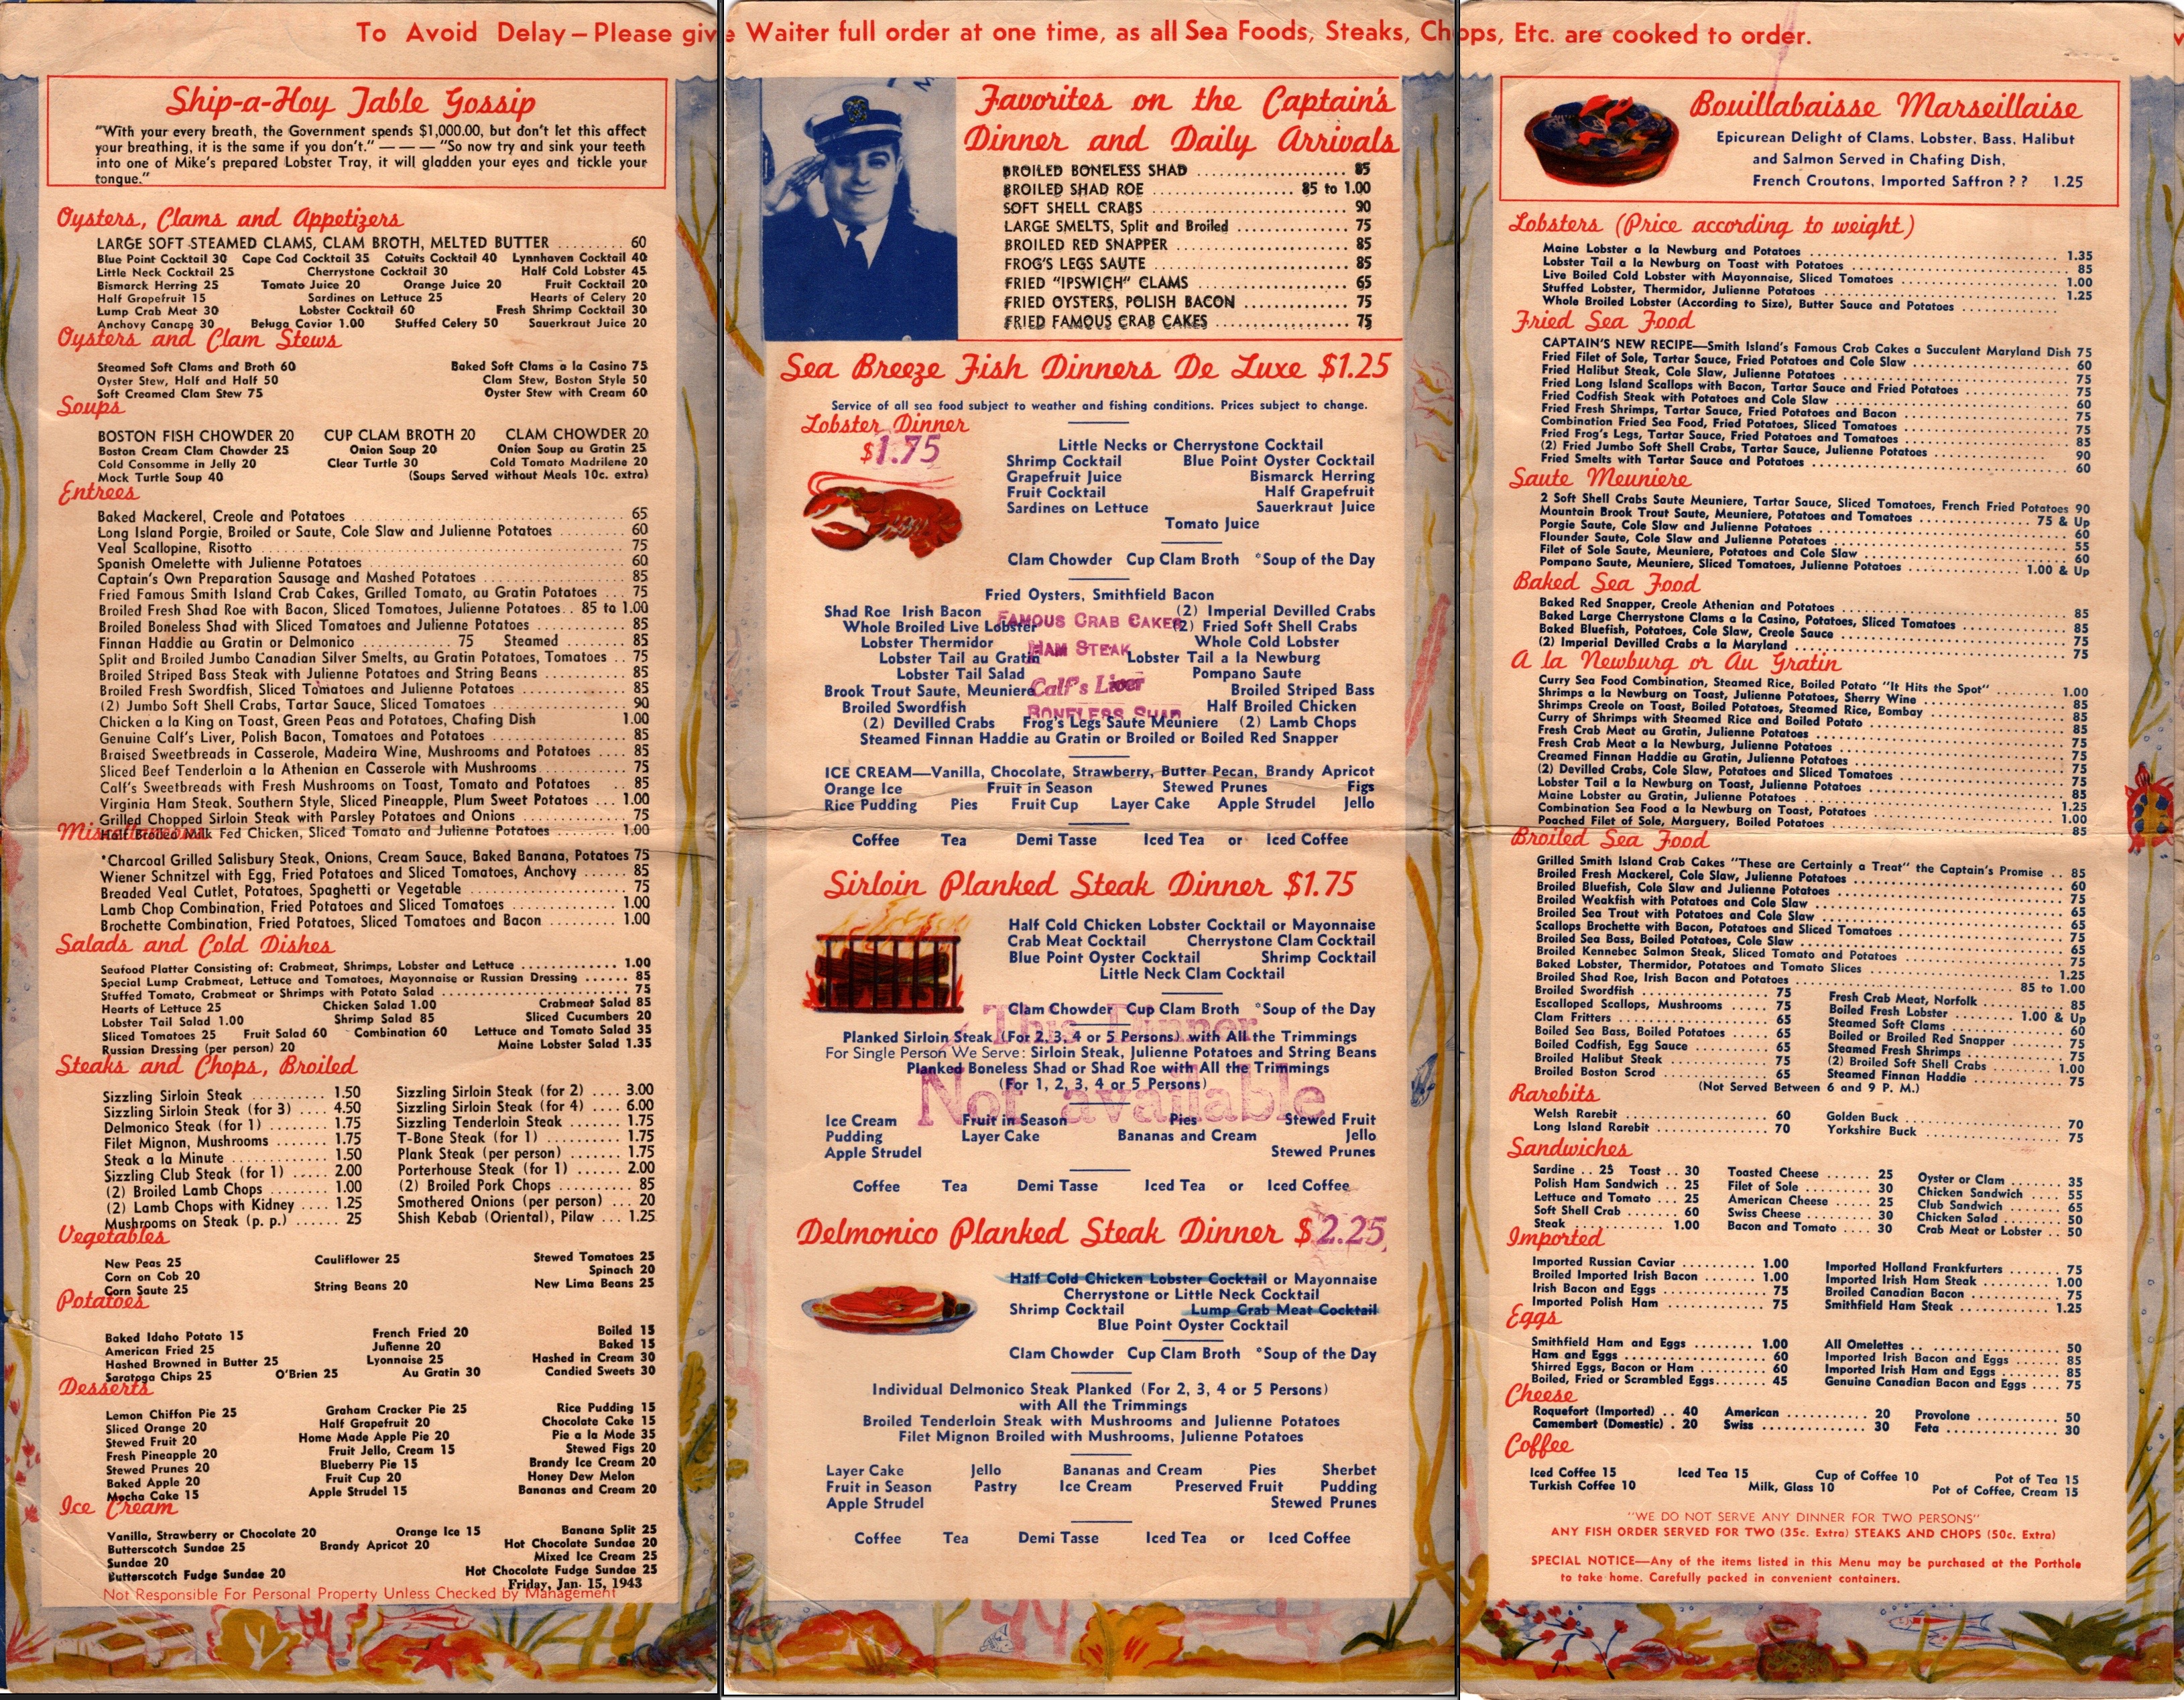 To Avoid Delay – Please give Waiter full order at one time, as all Sea Foods, Steaks, Chops, Etc. are cooked to order.
Ship-a-Hoy Table Gossip
"With your every breath, the Government spends $1,000.00, but don't let this affect
your breathing, it is the same if you don't." — — — "So now try and sink your teeth
into one of Mike's prepared Lobster Tray, it will gladden your eyes and tickle your
tongue."
Oysters, Clams and Appetizers
LARGE SOFT STEAMED CLAMS, CLAM BROTH, MELTED BUTTER ......... 60
Blue Point Cocktail 30 Cape Cod Cocktail 35 Cotuits Cocktail 40 Lynnhaven Cocktail 40
Little Neck Cocktail 25 Cherrystone Cocktail 30 Half Cold Lobster 45
Bismarck Herring 25 Tomato Juice 20 Orange Juice 20 Fruit Cocktail 20
Half Grapefruit 15 Sardines on Lettuce 25 Hearts of Celery 20
Lump Crab Meat 30 Lobster Cocktail 60 Fresh Shrimp Cocktail 30
Anchovy Canape 30 Beluga Caviar 1.00 Stuffed Celery 50 Sauerkraut Juice 20
Oysters and Clam Stews
Steamed Soft Clams and Broth 60 Baked Soft Clams a la Casino 75
Oyster Stew, Half and Half 50 Clam Stew, Boston Style 50
Soft Creamed Clam Stew 75 Oyster Stew with Cream 60
Soups
BOSTON FISH CHOWDER 20 CUP CLAM BROTH 20 CLAM CHOWDER 20
Boston Cream Clam Chowder 25 Onion Soup 20 Onion Soup au Gratin 25
Cold Consomme in Jelly 20 Clear Turtle 30 Cold Tomato Madrilene 20
Mock Turtle Soup 40 (Soups Served without Meals 10c. extra)
Entrees
Baked Mackerel, Creole and Potatoes ......... 65
Long Island Porgie, Broiled or Saute, Cole Slaw and Julienne Potatoes ......... 60
Veal Scallopine, Risotto ......... 75
Spanish Omelette with Julienne Potatoes ......... 60
Captain's Own Preparation Sausage and Mashed Potatoes ......... 85
Fried Famous Smith Island Crab Cakes, Grilled Tomato, au Gratin Potatoes ... 75
Broiled Fresh Shad Roe with Bacon, Sliced Tomatoes, Julienne Potatoes.. 85 to 1.00
Broiled Boneless Shad with Sliced Tomatoes and Julienne Potatoes ......... 85
Finnan Haddie au Gratin or Delmonico ......... 75 Steamed ......... 85
Split and Broiled Jumbo Canadian Silver Smelts, au Gratin Potatoes, Tomatoes .. 75
Broiled Striped Bass Steak with Julienne Potatoes and String Beans ......... 85
Broiled Fresh Swordfish, Sliced Tomatoes and Julienne Potatoes ......... 85
(2) Jumbo Soft Shell Crabs, Tartar Sauce, Sliced Tomatoes ......... 90
Chicken a la King on Toast, Green Peas and Potatoes, Chafing Dish 1.00
Genuine Calf's Liver, Polish Bacon, Tomatoes and Potatoes ......... 85
Braised Sweetbreads in Casserole, Madeira Wine, Mushrooms and Potatoes .... 85
Sliced Beef Tenderloin a la Athenian en Casserole with Mushrooms ......... 75
Calf's Sweetbreads with Fresh Mushrooms on Toast, Tomato and Potatoes .. 85
Virginia Ham Steak, Southern Style, Sliced Pineapple, Plum Sweet Potatoes ... 1.00
Grilled Chopped Sirloin Steak with Parsley Potatoes and Onions ......... 75
Half Broiled Milk Fed Chicken, Sliced Tomato and Julienne Potatoes ......... 1.00
Miscellaneous
*Charcoal Grilled Salisbury Steak, Onions, Cream Sauce, Baked Banana, Potatoes 75
Wiener Schnitzel with Egg, Fried Potatoes and Sliced Tomatoes, Anchovy ...... 85
Breaded Veal Cutlet, Potatoes, Spaghetti or Vegetable ......... 75
Lamb Chop Combination, Fried Potatoes and Sliced Tomatoes ......... 1.00
Brochette Combination, Fried Potatoes, Sliced Tomatoes and Bacon ......... 1.00
Salads and Cold Dishes
Seafood Platter Consisting of: Crabmeat, Shrimps, Lobster and Lettuce ......... 1.00
Special Lump Crabmeat, Lettuce and Tomatoes, Mayonnaise or Russian Dressing ...... 85
Stuffed Tomato, Crabmeat or Shrimps with Potato Salad ......... 75
Hearts of Lettuce 25 Chicken Salad 1.00 Crabmeat Salad 85
Lobster Tail Salad 1.00 Shrimp Salad 85 Sliced Cucumbers 20
Sliced Tomatoes 25 Fruit Salad 60 Combination 60 Lettuce and Tomato Salad 35
Russian Dressing (per person) 20 Maine Lobster Salad 1.35
Steaks and Chops, Broiled
Sizzling Sirloin Steak ......... 1.50 Sizzling Sirloin Steak (for 2) .... 3.00
Sizzling Sirloin Steak (for 3) .... 4.50 Sizzling Sirloin Steak (for 4) ... 6.00
Delmonico Steak (for 1) ...... 1.75 Sizzling Tenderloin Steak ...... 1.75
Filet Mignon, Mushrooms ....... 1.75 T-Bone Steak (for 1) ......... 1.75
Steak a la Minute ......... 1.50 Plank Steak (per person) ...... 1.75
Sizzling Club Steak (for 1) ..... 2.00 Porterhouse Steak (for 1) ...... 2.00
(2) Broiled Lamb Chops ........ 1.00 (2) Broiled Pork Chops ...... 85
(2) Lamb Chops with Kidney .... 1.25 Smothered Onions (per person) ... 20
Mushrooms on Steak (p. p.) ...... 25 Shish Kebab (Oriental), Pilaw ... 1.25
Vegetables
New Peas 25 Cauliflower 25 Stewed Tomatoes 25
Corn on Cob 20 Spinach 20
Corn Saute 25 String Beans 20 New Lima Beans 25
Potatoes
Baked Idaho Potato 15 French Fried 20 Boiled 15
American Fried 25 Julienne 20 Baked 15
Hashed Browned in Butter 25 Lyonnaise 25 Hashed in Cream 30
Saratoga Chips 25 O'Brien 25 Au Gratin 30 Candied Sweets 30
Desserts
Lemon Chiffon Pie 25 Graham Cracker Pie 25 Rice Pudding 15
Sliced Orange 20 Half Grapefruit 20 Chocolate Cake 15
Stewed Fruit 20 Home Made Apple Pie 20 Pie a la Mode 35
Fresh Pineapple 20 Fruit Jello, Cream 15 Stewed Figs 20
Stewed Prunes 20 Blueberry Pie 15 Brandy Ice Cream 20
Baked Apple 20 Fruit Cup 20 Honey Dew Melon
Mocha Cake 15 Apple Strudel 15 Bananas and Cream 20
Ice Cream
Vanilla, Strawberry or Chocolate 20 Orange Ice 15 Banana Split 25
Butterscotch Sundae 25 Brandy Apricot 20 Hot Chocolate Sundae 20
Sundae 20 Mixed Ice Cream 25
Butterscotch Fudge Sundae 20 Hot Chocolate Fudge Sundae 25
Friday, Jan. 15, 1943
Not Responsible For Personal Property Unless Checked by Management
Favorites on the Captain's
Dinner and Daily Arrivals
BROILED BONELESS SHAD ......... 85
BROILED SHAD ROE ......... 85 to 1.00
SOFT SHELL CRABS ......... 90
LARGE SMELTS, Split and Broiled ......... 75
BROILED RED SNAPPER ......... 85
FROG'S LEGS SAUTE ......... 85
FRIED "IPSWICH" CLAMS ......... 65
FRIED OYSTERS, POLISH BACON ......... 75
FRIED FAMOUS CRAB CAKES ......... 75
Sea Breeze Fish Dinners De Luxe $1.25
Service of all sea food subject to weather and fishing conditions. Prices subject to change.
Lobster Dinner
$1.75
Little Necks or Cherrystone Cocktail
Shrimp Cocktail Blue Point Oyster Cocktail
Grapefruit Juice Bismarck Herring
Fruit Cocktail Half Grapefruit
Sardines on Lettuce Sauerkraut Juice
Tomato Juice
Clam Chowder Cup Clam Broth *Soup of the Day
Fried Oysters, Smithfield Bacon
Shad Roe Irish Bacon (2) Imperial Devilled Crabs
FAMOUS CRAB CAKES
Whole Broiled Live Lobster (2) Fried Soft Shell Crabs
Lobster Thermidor Whole Cold Lobster
HAM STEAK
Lobster Tail au Gratin Lobster Tail a la Newburg
Lobster Tail Salad Pompano Saute
Calf's Liver
Brook Trout Saute, Meuniere Broiled Striped Bass
Broiled Swordfish Half Broiled Chicken
BONELESS SHAD
(2) Devilled Crabs Frog's Legs Saute Meuniere (2) Lamb Chops
Steamed Finnan Haddie au Gratin or Broiled or Boiled Red Snapper
ICE CREAM—Vanilla, Chocolate, Strawberry, Butter Pecan, Brandy Apricot
Orange Ice Fruit in Season Stewed Prunes Figs
Rice Pudding Pies Fruit Cup Layer Cake Apple Strudel Jello
Coffee Tea Demi Tasse Iced Tea or Iced Coffee
Sirloin Planked Steak Dinner $1.75
Half Cold Chicken Lobster Cocktail or Mayonnaise
Crab Meat Cocktail Cherrystone Clam Cocktail
Blue Point Oyster Cocktail Shrimp Cocktail
Little Neck Clam Cocktail
Clam Chowder Cup Clam Broth *Soup of the Day
This Dinner
Planked Sirloin Steak (For 2, 3, 4 or 5 Persons) with All the Trimmings
For Single Person We Serve: Sirloin Steak, Julienne Potatoes and String Beans
Planked Boneless Shad or Shad Roe with All the Trimmings
(For 1, 2, 3, 4 or 5 Persons)
Not available
Ice Cream Fruit in Season Pies Stewed Fruit
Pudding Layer Cake Bananas and Cream Jello
Apple Strudel Stewed Prunes
Coffee Tea Demi Tasse Iced Tea or Iced Coffee
Delmonico Planked Steak Dinner $2.25
Half Cold Chicken Lobster Cocktail or Mayonnaise
Cherrystone or Little Neck Cocktail
Shrimp Cocktail Lump Crab Meat Cocktail
Blue Point Oyster Cocktail
Clam Chowder Cup Clam Broth *Soup of the Day
Individual Delmonico Steak Planked (For 2, 3, 4 or 5 Persons)
with All the Trimmings
Broiled Tenderloin Steak with Mushrooms and Julienne Potatoes
Filet Mignon Broiled with Mushrooms, Julienne Potatoes
Layer Cake Jello Bananas and Cream Pies Sherbet
Fruit in Season Pastry Ice Cream Preserved Fruit Pudding
Apple Strudel Stewed Prunes
Coffee Tea Demi Tasse Iced Tea or Iced Coffee
Bouillabaisse Marseillaise
Epicurean Delight of Clams, Lobster, Bass, Halibut
and Salmon Served in Chafing Dish,
French Croutons, Imported Saffron ? ? 1.25
Lobsters (Price according to weight)
Maine Lobster a la Newburg and Potatoes ......... 1.35
Lobster Tail a la Newburg on Toast with Potatoes ......... 85
Live Boiled Cold Lobster with Mayonnaise, Sliced Tomatoes ......... 1.00
Stuffed Lobster, Thermidor, Julienne Potatoes ......... 1.25
Whole Broiled Lobster (According to Size), Butter Sauce and Potatoes .........
Fried Sea Food
CAPTAIN'S NEW RECIPE—Smith Island's Famous Crab Cakes a Succulent Maryland Dish 75
Fried Filet of Sole, Tartar Sauce, Fried Potatoes and Cole Slaw ......... 60
Fried Halibut Steak, Cole Slaw, Julienne Potatoes ......... 75
Fried Long Island Scallops with Bacon, Tartar Sauce and Fried Potatoes ......... 75
Fried Codfish Steak with Potatoes and Cole Slaw ......... 60
Fried Fresh Shrimps, Tartar Sauce, Fried Potatoes and Bacon ......... 75
Combination Fried Sea Food, Fried Potatoes, Sliced Tomatoes ......... 75
Fried Frog's Legs, Tartar Sauce, Fried Potatoes and Tomatoes ......... 85
(2) Fried Jumbo Soft Shell Crabs, Tartar Sauce, Julienne Potatoes ......... 90
Fried Smelts with Tartar Sauce and Potatoes ......... 60
Saute Meuniere
2 Soft Shell Crabs Saute Meuniere, Tartar Sauce, Sliced Tomatoes, French Fried Potatoes 90
Mountain Brook Trout Saute, Meuniere, Potatoes and Tomatoes ......... 75 & Up
Porgie Saute, Cole Slaw and Julienne Potatoes ......... 60
Flounder Saute, Cole Slaw and Julienne Potatoes ......... 55
Filet of Sole Saute, Meuniere, Potatoes and Cole Slaw ......... 60
Pompano Saute, Meuniere, Sliced Tomatoes, Julienne Potatoes ......... 1.00 & Up
Baked Sea Food
Baked Red Snapper, Creole Athenian and Potatoes ......... 85
Baked Large Cherrystone Clams a la Casino, Potatoes, Sliced Tomatoes ......... 85
Baked Bluefish, Potatoes, Cole Slaw, Creole Sauce ......... 75
(2) Imperial Devilled Crabs a la Maryland ......... 75
A la Newburg or Au Gratin
Curry Sea Food Combination, Steamed Rice, Boiled Potato "It Hits the Spot" ......... 1.00
Shrimps a la Newburg on Toast, Julienne Potatoes, Sherry Wine ......... 85
Shrimps Creole on Toast, Boiled Potatoes, Steamed Rice, Bombay ......... 85
Curry of Shrimps with Steamed Rice and Boiled Potato ......... 85
Fresh Crab Meat au Gratin, Julienne Potatoes ......... 85
Fresh Crab Meat a la Newburg, Julienne Potatoes ......... 75
Creamed Finnan Haddie au Gratin, Julienne Potatoes ......... 75
(2) Devilled Crabs, Cole Slaw, Potatoes and Sliced Tomatoes ......... 75
Lobster Tail a la Newburg on Toast, Julienne Potatoes ......... 75
Maine Lobster au Gratin, Julienne Potatoes ......... 85
Combination Sea Food a la Newburg on Toast, Potatoes ......... 1.25
Poached Filet of Sole, Marguery, Boiled Potatoes ......... 1.00
85
Broiled Sea Food
Grilled Smith Island Crab Cakes "These are Certainly a Treat" the Captain's Promise .. 85
Broiled Fresh Mackerel, Cole Slaw, Julienne Potatoes ......... 60
Broiled Bluefish, Cole Slaw and Julienne Potatoes ......... 75
Broiled Weakfish with Potatoes and Cole Slaw ......... 65
Broiled Sea Trout with Potatoes and Cole Slaw ......... 65
Scallops Brochette with Bacon, Potatoes and Sliced Tomatoes ......... 75
Broiled Sea Bass, Boiled Potatoes, Cole Slaw ......... 65
Broiled Kennebec Salmon Steak, Sliced Tomato and Potatoes ......... 75
Baked Lobster, Thermidor, Potatoes and Tomato Slices ......... 1.25
Broiled Shad Roe, Irish Bacon and Potatoes ......... 85 to 1.00
Broiled Swordfish ......... 75 Fresh Crab Meat, Norfolk ......... 85
Escalloped Scallops, Mushrooms .... 75 Boiled Fresh Lobster ......... 1.00 & Up
Clam Fritters ......... 65 Steamed Soft Clams ......... 60
Boiled Sea Bass, Boiled Potatoes .... 65 Boiled or Broiled Red Snapper ...... 75
Boiled Codfish, Egg Sauce ......... 65 Steamed Fresh Shrimps ......... 75
Broiled Halibut Steak ......... 75 (2) Broiled Soft Shell Crabs ......... 1.00
Broiled Boston Scrod ......... 65 Steamed Finnan Haddie ......... 75
(Not Served Between 6 and 9 P. M.)
Rarebits
Welsh Rarebit ......... 60 Golden Buck ......... 70
Long Island Rarebit ......... 70 Yorkshire Buck ......... 75
Sandwiches
Sardine .. 25 Toast .. 30 Toasted Cheese ...... 25 Oyster or Clam ......... 35
Polish Ham Sandwich .. 25 Filet of Sole ......... 30 Chicken Sandwich .... 55
Lettuce and Tomato ... 25 American Cheese ...... 25 Club Sandwich ...... 65
Soft Shell Crab ....... 60 Swiss Cheese ......... 30 Chicken Salad ...... 50
Steak ......... 1.00 Bacon and Tomato .... 30 Crab Meat or Lobster .. 50
Imported
Imported Russian Caviar ......... 1.00 Imported Holland Frankfurters ....... 75
Broiled Imported Irish Bacon ....... 1.00 Imported Irish Ham Steak ......... 1.00
Irish Bacon and Eggs ......... 75 Broiled Canadian Bacon ......... 75
Imported Polish Ham ......... 75 Smithfield Ham Steak ......... 1.25
Eggs
Smithfield Ham and Eggs ......... 1.00 All Omelettes ......... 50
Ham and Eggs ......... 60 Imported Irish Bacon and Eggs ...... 85
Shirred Eggs, Bacon or Ham ....... 60 Imported Irish Ham and Eggs ....... 85
Boiled, Fried or Scrambled Eggs...... 45 Genuine Canadian Bacon and Eggs .... 75
Cheese
Roquefort (Imported) .. 40 American ......... 20 Provolone ......... 50
Camembert (Domestic) . 20 Swiss ......... 30 Feta ......... 30
Coffee
Iced Coffee 15 Iced Tea 15 Cup of Coffee 10 Pot of Tea 15
Turkish Coffee 10 Milk, Glass 10 Pot of Coffee, Cream 15
"WE DO NOT SERVE ANY DINNER FOR TWO PERSONS"
ANY FISH ORDER SERVED FOR TWO (35c. Extra) STEAKS AND CHOPS (50c. Extra)
SPECIAL NOTICE—Any of the items listed in this Menu may be purchased at the Porthole
to take home. Carefully packed in convenient containers.